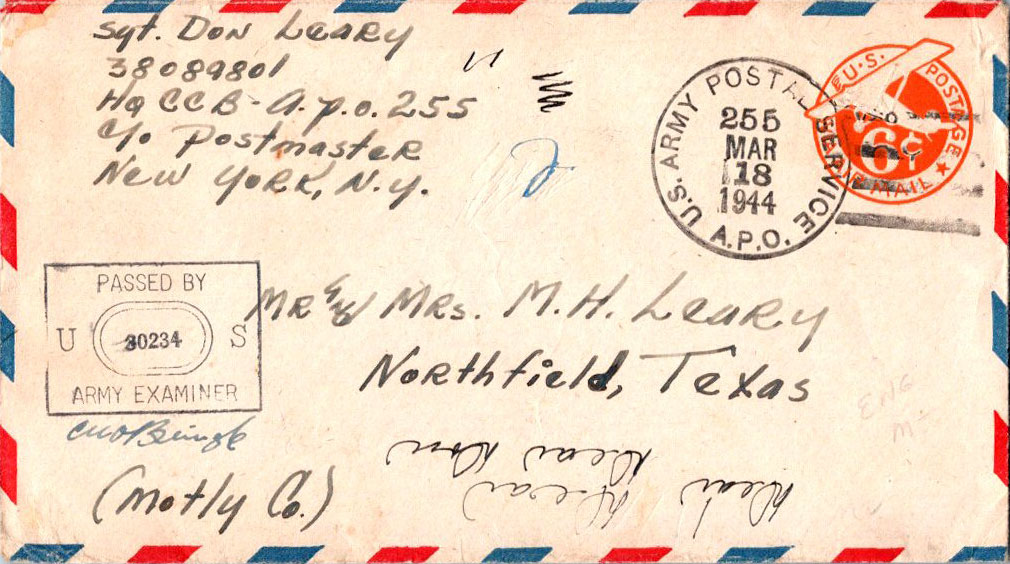 Sgt. Don Leary
38089801
Hq CCB - A.P.O. 255
c/o Postmaster
New York, N.Y.
U.S. ARMY POSTAL SERVICE
255
MAR
18
1944
A.P.O.
U.S. POSTAGE
6¢
AIR MAIL
PASSED BY
U 30234 S
ARMY EXAMINER
Mr & Mrs. M.H. Leary
Northfield, Texas
(Motly Co.)
Dear Don
Dear
Dear
ENG